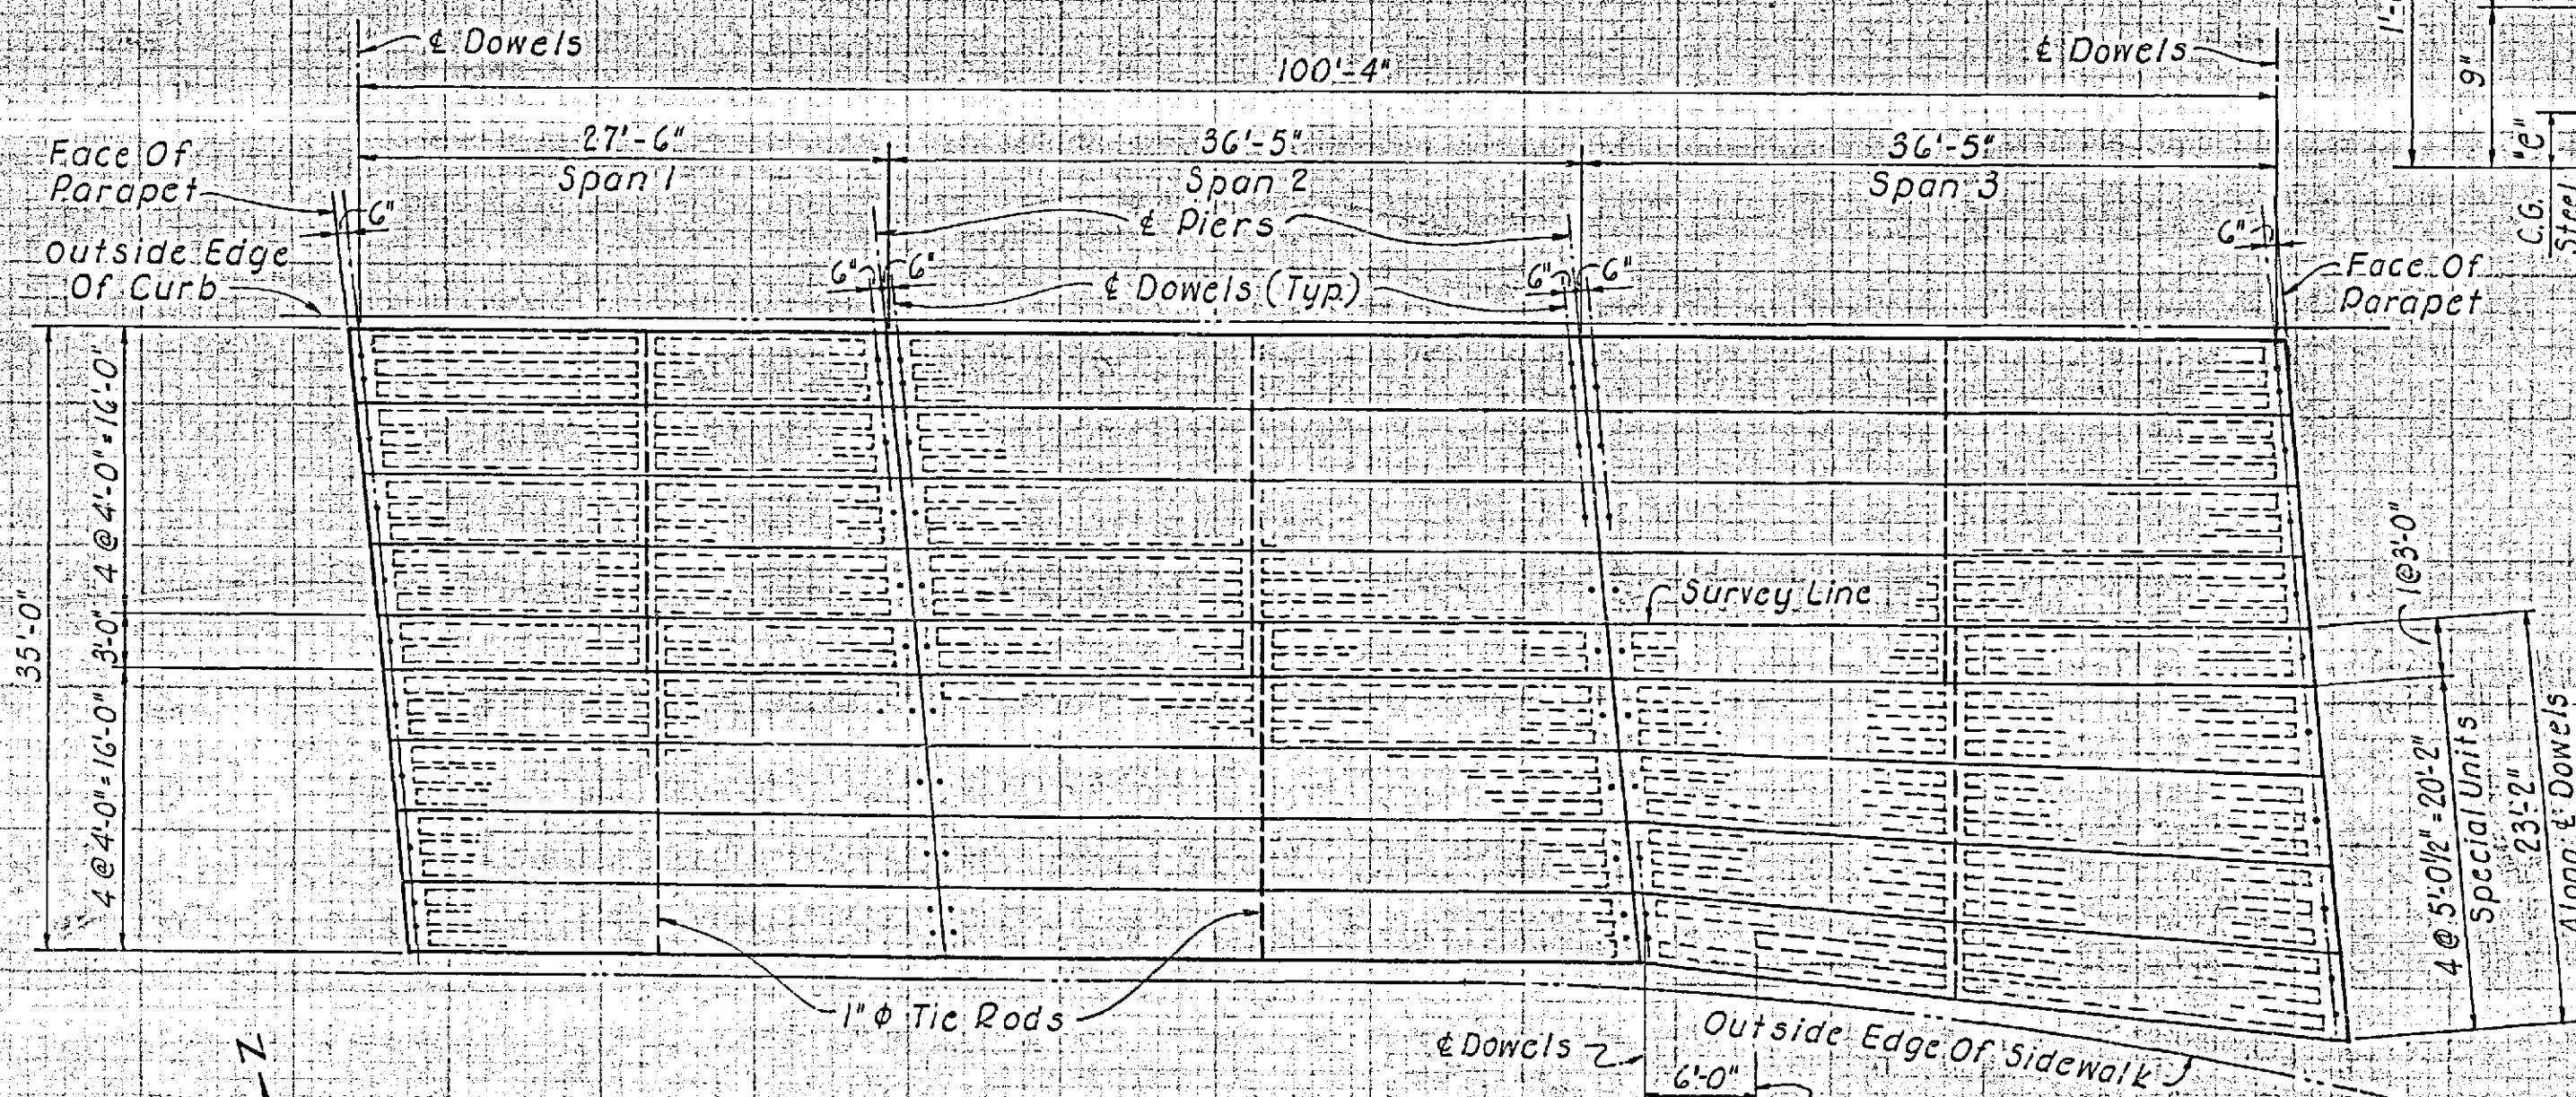 ℄ Dowels
℄ Dowels
100'-4"
1'-
9"
"e"
C.G.
Steel
27'-6"
Span 1
36'-5"
Span 2
36'-5"
Span 3
Face Of
Parapet
6"
℄ Piers
6"
Outside Edge
Of Curb
6"
6"
℄ Dowels (Typ.)
6"
6"
Face Of
Parapet
35'-0"
4 @ 4'-0" = 16'-0"
3'-0"
4 @ 4'-0" = 16'-0"
Survey Line
1 @ 3'-0"
4 @ 5'-0½" = 20'-2"
Special Units
23'-2"
Along ℄ Dowels
1" ϕ Tie Rods
℄ Dowels
Outside Edge Of Sidewalk
6'-0"
N